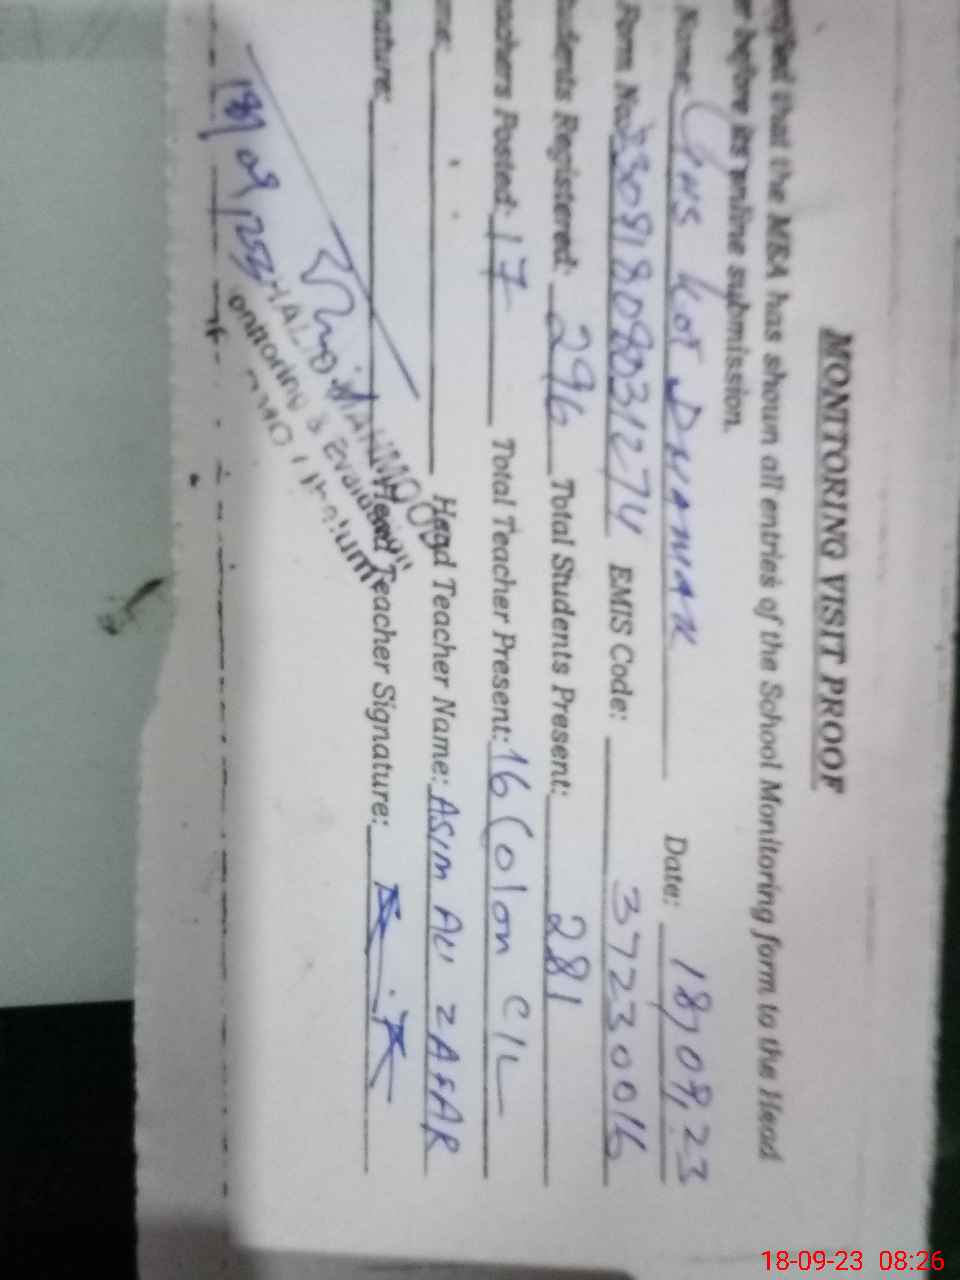 MONITORING VISIT PROOF
that the MEA has shown all entries of the School Monitoring form to the Head
before its online submission.
Name: GHS Kot Date: 18/09/23
Form No: EMIS Code: 37230016
Students Registered: 296 Total Students Present: 281
Teachers Posted: 17 Total Teacher Present: 16 (01 on C/L
Head Teacher Name: ASIM ALI ZAFAR
Head Teacher Signature:
18/09/23
18-09-23 08:26